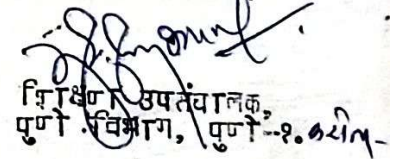 शिक्षण उपसंचालक,
पुणे विभाग, पुणे-१. करीता-